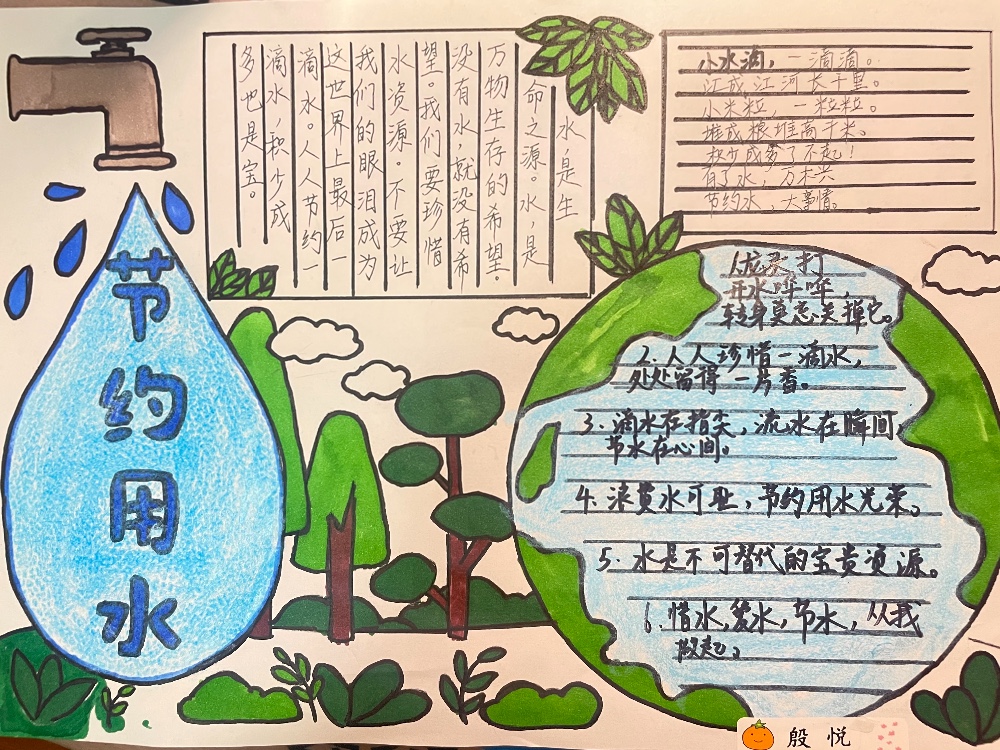 节约用水
水,是生
命之源。水,是
万物生存的希望。
没有水,就没有希
望。我们要珍惜
水资源。不要让
我们的眼泪成为
这世界上最后一
滴水。人人节约一
滴水,积少成
多也是宝。
小水滴,一滴滴。
汇成江河长千里。
小米粒,一粒粒。
堆成粮堆高千米。
积少成多了不起!
有了水,万木兴
节约水,大事情。
龙头打
开水哗哗,
转身莫忘关掉它。
2.人人珍惜一滴水,
处处留得一片春。
3.滴水在指尖,流水在瞬间,
节水在心间。
4.浪费水可耻,节约用水光荣。
5.水是不可替代的宝贵资源。
6.惜水,爱水,节水,从我
做起。
殷悦